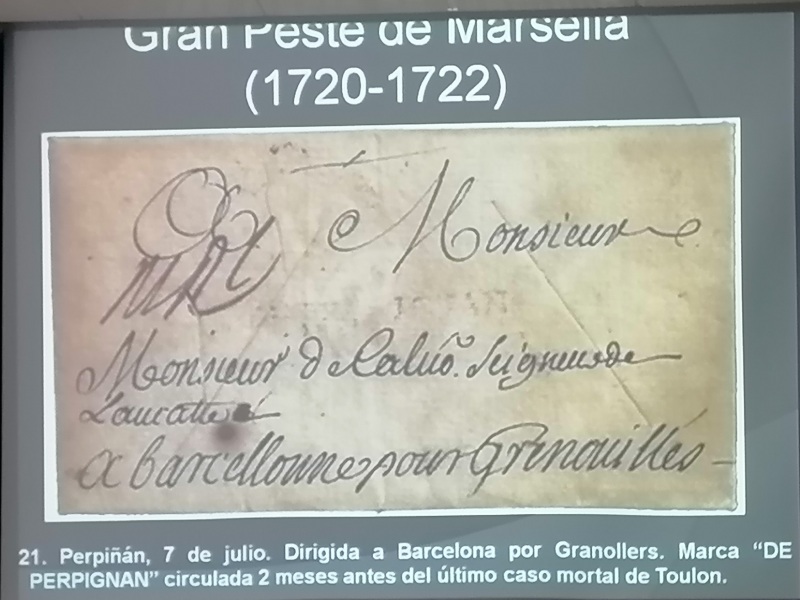 Gran Peste de Marsella
(1720-1722)
Monsieur
Monsieur
Seigneur de
a barcellonne pour Grenouilles
21. Perpiñán, 7 de julio. Dirigida a Barcelona por Granollers. Marca “DE
PERPIGNAN” circulada 2 meses antes del último caso mortal de Toulon.